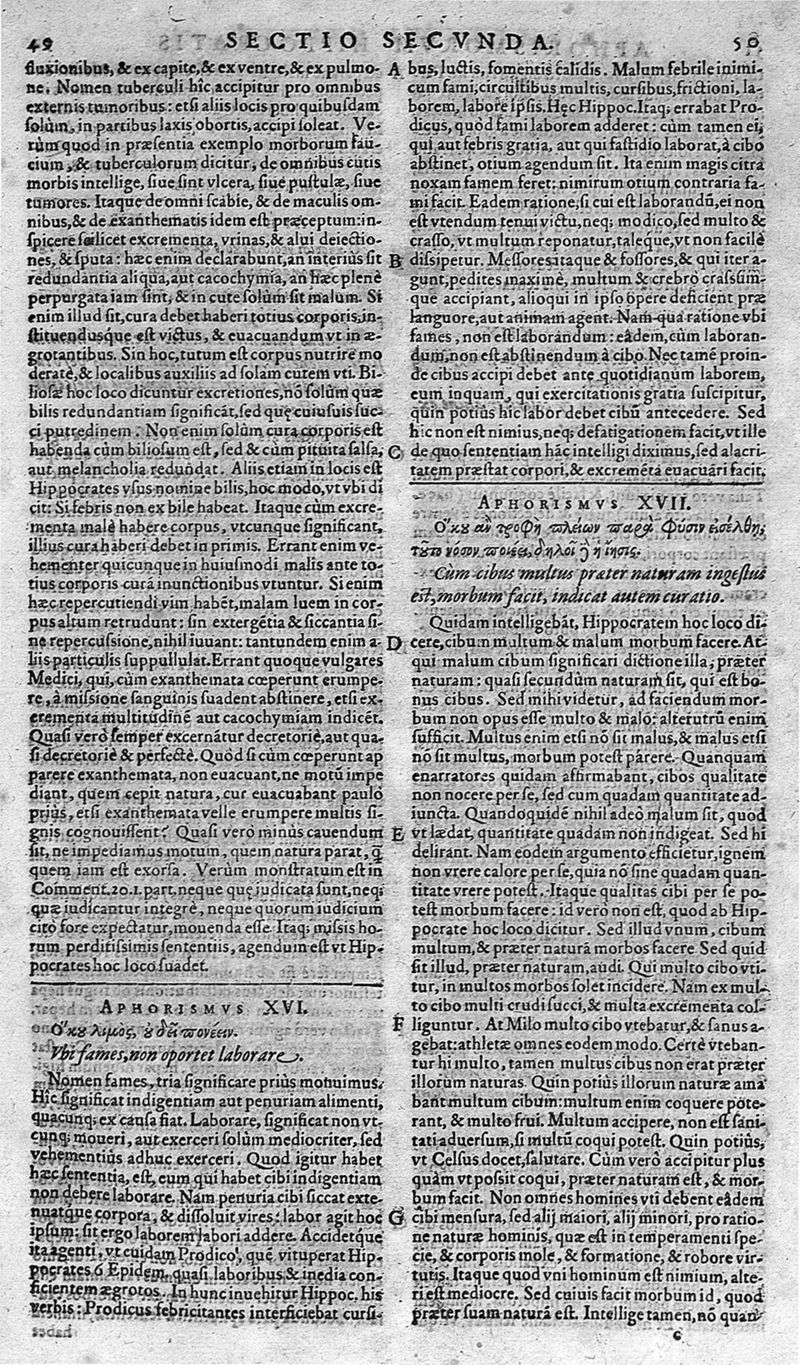 49
SECTIO SECVNDA.
50
fluxionibus, & ex capite, & ex ventre, & ex pulmo-
ne. Nomen tuberculi hîc accipitur pro omnibus
externis tumoribus: etsi aliis locis pro quibusdam
solùm, in partibus laxis obortis, accipi soleat. Ve-
rùm quod in præsentia exemplo morborum fau-
cium, & tuberculorum dicitur, de omnibus cutis
morbis intellige, siue sint vlcera, siue pustulæ, siue
tumores. Itaque de omni scabie, & de maculis om-
nibus, & de exanthematis idem est præceptum: in-
spicere scilicet excrementa, vrinas, & alui deiectio-
nes, & sputa: hæc enim declarabunt, an interius sit
redundantia aliqua, aut cacochymia, an hæc plenè
perpurgata iam sint, & in cute solùm sit malum. Si
enim illud sit, cura debet haberi totius corporis, in-
stituendusque est victus, & euacuandum vt in æ-
grotantibus. Sin hoc, tutum est corpus nutrire mo
deratè, & localibus auxiliis ad solam cutem vti. Bi-
liosæ hoc loco dicuntur excretiones, nō solùm quæ
bilis redundantiam significāt, sed quę cuiusuis suc-
ci putredinem. Non enim solùm cura corporis est
habenda cùm biliosum est, sed & cùm pituita salsa,
aut melancholia redundat. Aliis etiam in locis est
Hippocrates vsus nomine bilis, hoc modo, vt vbi di
cit: Si febris non ex bile habeat. Itaque cùm excre-
menta malè habere corpus, vtcunque significant,
illius cura haberi debet in primis. Errant enim ve-
hementer quicunque in huiusmodi malis ante to-
tius corporis curā inunctionibus vtuntur. Si enim
hæc repercutiendi vim habēt, malam luem in cor-
pus altum retrudunt: sin extergētia & siccantia si-
ne repercussione, nihil iuuant: tantundem enim a-
liis particulis suppullulat. Errant quoque vulgares
Medici, qui, cùm exanthemata cœperunt erumpe-
re, à missione sanguinis suadent abstinere, etsi ex-
crementa multitudinē aut cacochymiam indicēt.
Quasi verò semper excernātur decretoriè, aut qua-
si decretoriè & perfectè. Quòd si cùm cœperunt ap
parere exanthemata, non euacuant, ne motū impe
diant, quem cepit natura, cur euacuabant paulò
priùs, etsi exanthemata velle erumpere multis si-
gnis cognouissent? Quasi verò minus cauendum
sit, ne impediamus motum, quem natura parat, q̄
quem iam est exorsa. Verùm monstratum est in
Comment. 20. 1. part. neque quę iudicata sunt, neq;
quæ iudicantur integrè, neque quorum iudicium
citò fore expectatur, mouenda esse. Itaq; missis ho-
rum perditissimis sententiis, agendum est vt Hip-
pocrates hoc loco suadet.
APHORISMVS XVI.
Ὅκου λιμὸς, οὐ δεῖ πονέειν.
Vbi fames, non oportet laborare.
Nomen fames, tria significare priùs monuimus.
Hîc significat indigentiam aut penuriam alimenti,
quacunq; ex causa fiat. Laborare, significat non vt-
cunq; moueri, aut exerceri solùm mediocriter, sed
vehementiùs adhuc exerceri. Quod igitur habet
hæc sententia, est, eum qui habet cibi indigentiam
non debere laborare. Nam penuria cibi siccat exte-
nuatque corpora, & dissoluit vires: labor agit hoc
ipsum: sit ergo laborem labori addere. Accidetque
ita agenti, vt cuidam Prodico, quē vituperat Hip-
pocrates 6 Epidem. quasi laboribus & inedia con-
ficientem ægrotos. In hunc inuehitur Hippoc. his
verbis: Prodicus febricitantes interficiebat cursi-
A bus, luctis, fomentis calidis. Malum febrile inimi-
cum fami, circuitibus multis, cursibus, frictioni, la-
borem, labore ipsis. Hęc Hippoc. Itaq; errabat Pro-
dicus, quòd fami laborem adderet: cùm tamen ei,
qui aut febris gratia, aut qui fastidio laborat, à cibo
abstinet, otium agendum sit. Ita enim magis citra
noxam famem feret: nimirum otium contraria fa-
mi facit. Eadem ratione, si cui est laborandū, ei non
est vtendum tenui victu, neq; modico, sed multo &
crasso, vt multum reponatur, taleque, vt non facilè
B dissipetur. Messores itaque & fossores, & qui iter a-
gunt, pedites maximè, multum & crebrò crassum-
que accipiant, alioqui in ipso opere deficient præ
languore, aut animam agent. Nam qua ratione vbi
fames, non est laborandum: eâdem, cùm laboran-
dum, non est abstinendum à cibo. Nec tamē proin-
de cibus accipi debet ante quotidianum laborem,
eum inquam, qui exercitationis gratia suscipitur,
quin potiùs hic labor debet cibū antecedere. Sed
hic non est nimius, neq; defatigationem facit, vt ille
C de quo sententiam hāc intelligi diximus, sed alacri-
tatem præstat corpori, & excremēta euacuári facit.
APHORISMVS XVII.
Ὅκου ἂν τροφὴ πλείων παρὰ φύσιν ἐισέλθῃ,
τοῦτο νοῦσον ποιέει, δηλοῖ δὲ ἡ ἴησις.
Cùm cibus multus præter naturam ingestus
est, morbum facit, indicat autem curatio.
Quidam intelligebāt, Hippocratem hoc loco di-
D cere, cibum multum & malum morbum facere. At-
qui malum cibum significari dictione illa, præter
naturam: quasi secundùm naturam sit, qui est bo-
nus cibus. Sed mihi videtur, ad faciendum mor-
bum non opus esse multo & malo: alterutrū enim
sufficit. Multus enim etsi nō sit malus, & malus etsi
nō sit multus, morbum potest párere. Quanquam
enarratores quidam affirmabant, cibos qualitate
non nocere per se, sed cum quadam quantitate ad-
iuncta. Quandoquidē nihil adeò malum sit, quod
E vt lædat, quantitate quadam non indigeat. Sed hi
delirant. Nam eodem argumento efficietur, ignem
non vrere calore per se, quia nō sine quadam quan-
titate vrere potest. Itaque qualitas cibi per se po-
test morbum facere: id verò non est, quod ab Hip-
pocrate hoc loco dicitur. Sed illud vnum, cibum
multum, & præter naturā morbos facere Sed quid
sit illud, præter naturam, audi. Qui multo cibo vti-
tur, in multos morbos solet incidere. Nam ex mul-
to cibo multi crudi succi, & multa excrementa col-
F liguntur. At Milo multo cibo vtebatur, & sanus a-
gebat: athletæ omnes eodem modo. Certè vteban-
tur hi multo, tamen multus cibus non erat præter
illorum naturas. Quin potiùs illorum naturæ ama
bant multum cibum: multum enim coquere pote-
rant, & multo frui. Multum accipere, non est sani-
tati aduersum, si multū coqui potest. Quin potiùs,
vt Celsus docet, salutare. Cùm verò accipitur plus
quàm vt possit coqui, præter naturam est, & mor-
bum facit. Non omnes homines vti debent eâdem
G cibi mensura, sed alij maiori, alij minori, pro ratio-
ne naturæ hominis, quæ est in temperamenti spe-
cie, & corporis mole, & formatione, & robore vir-
tutis. Itaque quod vni hominum est nimium, alte-
ri est mediocre. Sed cuiuis facit morbum id, quod
præter suam naturā est. Intellige tamen, nō quan-
c